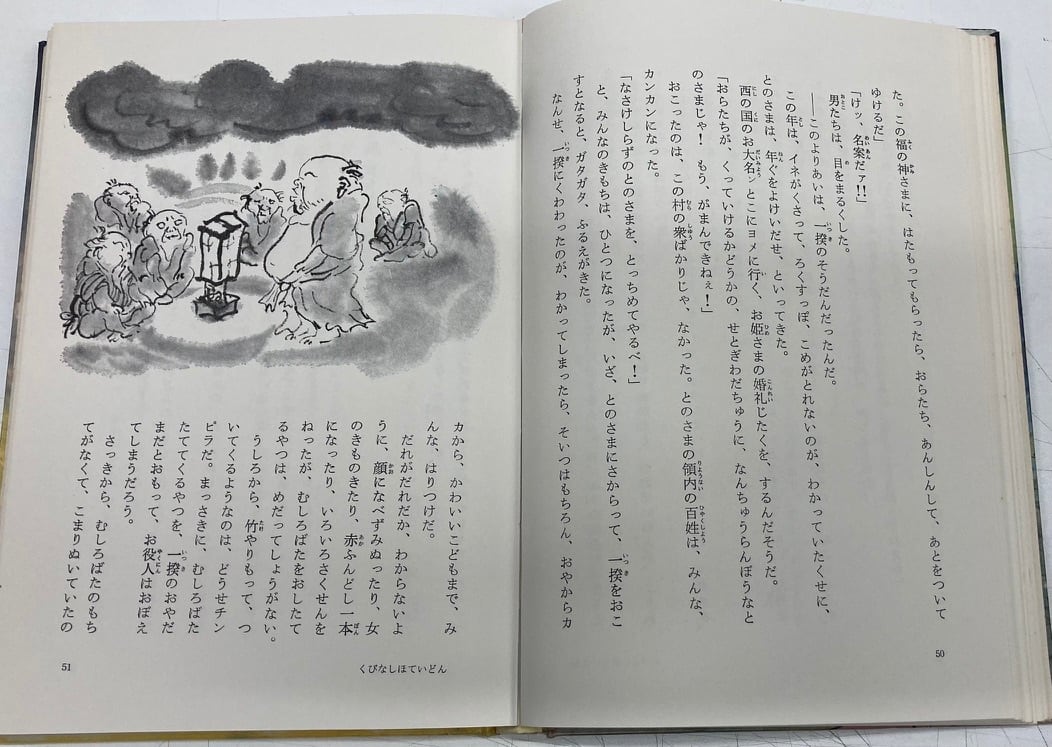 た。この福の神さまに、はたもってもらったら、おらたち、あんしんして、あとをついて
ゆけるだ」
「けッ、名案だァ!!」
男たちは、目をまるくした。
――このよりあいは、一揆のそうだんだったんだ。
この年は、イネがくさって、ろくすっぽ、こめがとれないのが、わかっていたくせに、
とのさまは、年ぐをよけいだせ、といってきた。
西の国のお大名ンとこにヨメに行く、お姫さまの婚礼じたくを、するんだそうだ。
「おらたちが、くっていけるかどうかの、せとぎわだちゅうに、なんちゅうらんぼうなと
のさまじゃ! もう、がまんできねぇ!」
おこったのは、この村の衆ばかりじゃ、なかった。とのさまの領内の百姓は、みんな、
カンカンになった。
「なさけしらずのとのさまを、とっちめてやるべ!」
と、みんなのきもちは、ひとつになったが、いざ、とのさまにさからって、一揆をおこ
すとなると、ガタガタ、ふるえがきた。
なんせ、一揆にくわわったのが、わかってしまったら、そいつはもちろん、おやからカ
50
カから、かわいいこどもまで、み
んな、はりつけだ。
だれがだれだか、わからないよ
うに、顔になべずみぬったり、女
のきものきたり、赤ふんどし一本
になったり、いろいろさくせんを
ねったが、むしろばたをおしたて
るやつは、めだってしょうがない。
うしろから、竹やりもって、つ
いてくるようなのは、どうせチン
ピラだ。まっさきに、むしろばた
たててくるやつを、一揆のおやだ
まだとおもって、お役人はおぼえ
てしまうだろう。
さっきから、むしろばたのもち
てがなくて、こまりぬいていたの
くびなしほていどん
51